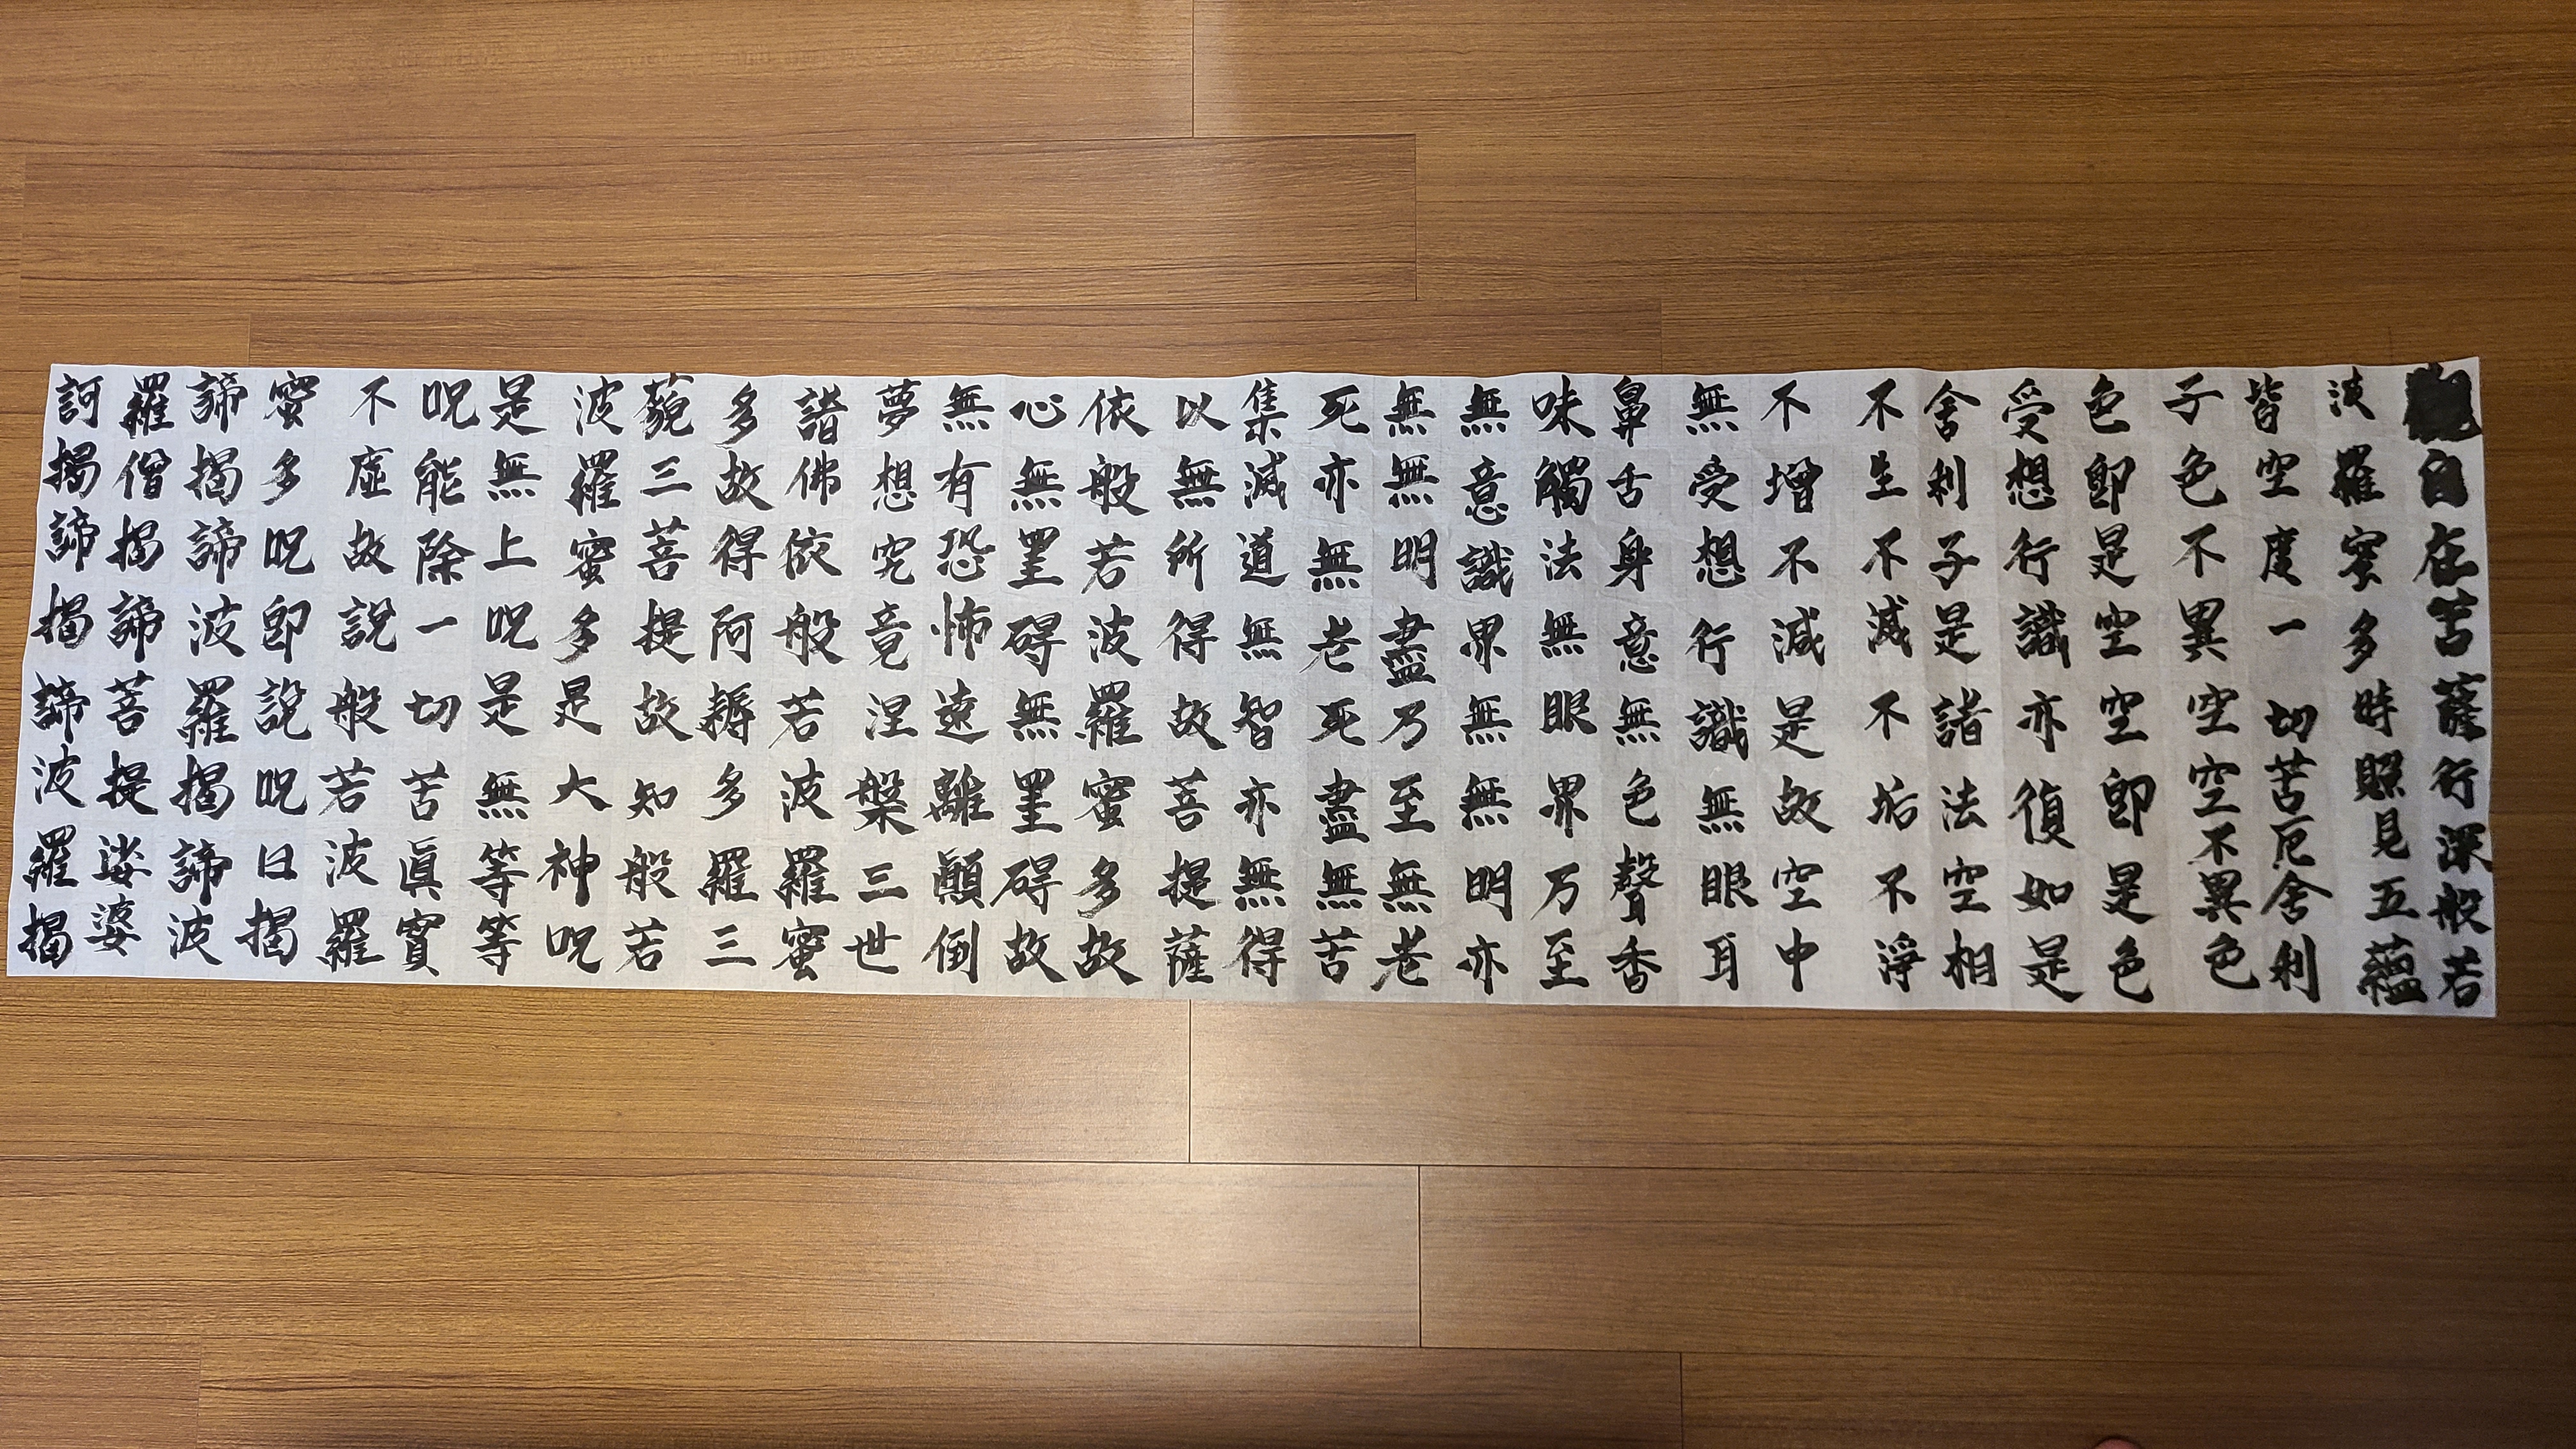 觀自在菩薩行深般若
波羅蜜多時照見五蘊
皆空度一切苦厄舍利
子色不異空空不異色
色卽是空空卽是色
受想行識亦復如是
舍利子是諸法空相
不生不滅不垢不淨
不增不減是故空中
無受想行識無眼耳
鼻舌身意無色聲香
味觸法無眼界乃至
無意識界無無明亦
無無明盡乃至無老
死亦無老死盡無苦
集滅道無智亦無得
以無所得故菩提薩
依般若波羅蜜多故
心無罣碍無罣碍故
無有恐怖遠離顚倒
夢想究竟涅槃三世
諸佛依般若波羅蜜
多故得阿耨多羅三
藐三菩提故知般若
波羅蜜多是大神呪
是無上呪是無等等
呪能除一切苦眞實
不虛故說般若波羅
蜜多呪卽說呪曰揭
諦揭諦波羅揭諦波
羅僧揭諦菩提娑婆
訶揭諦揭諦波羅揭